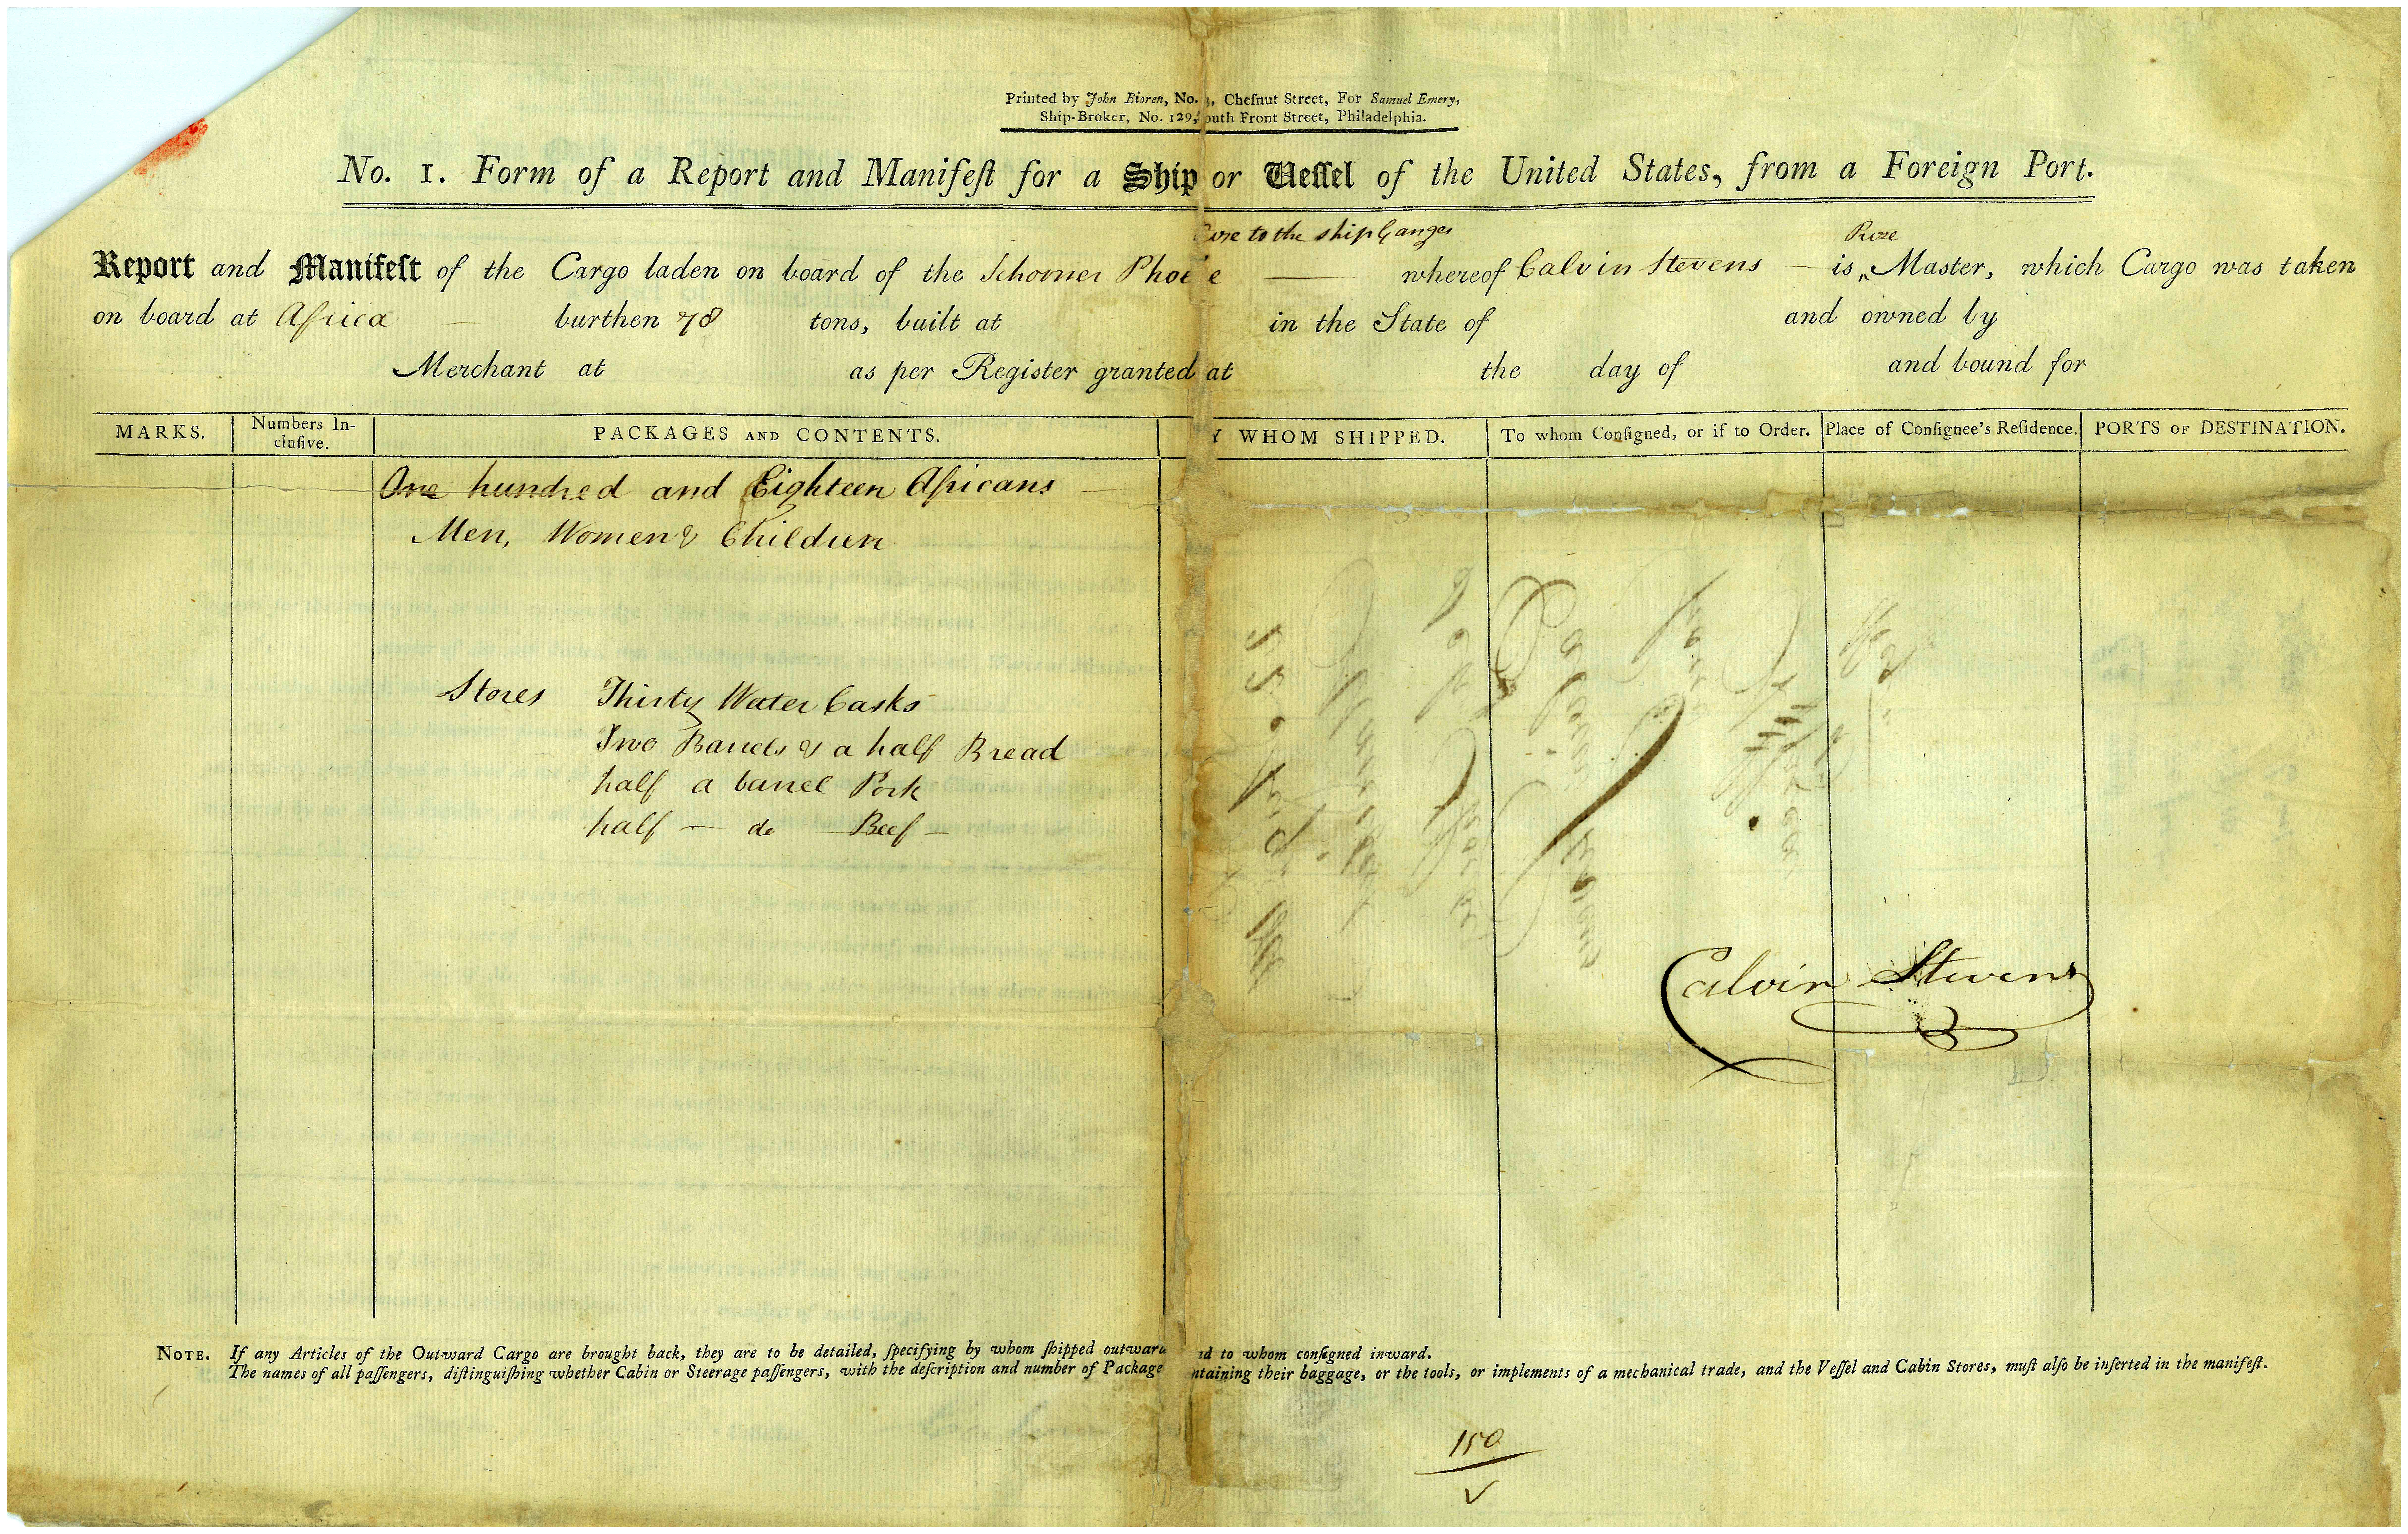 Printed by John Bioren, No. 3, Cheſnut Street, For Samuel Emery,
Ship-Broker, No. 129, outh Front Street, Philadelphia.
No. 1. Form of a Report and Manifeſt for a Ship or Veſſel of the United States, from a Foreign Port.
to the ship Ganges
Prize
Report and Manifeſt of the Cargo laden on board of the Schooner Phoe e whereof Calvin Stevens is ‸ Master, which Cargo was taken
on board at Africa burthen 78 tons, built at in the State of and owned by
Merchant at as per Register granted at the day of and bound for
MARKS. Numbers In-
cluſive. PACKAGES AND CONTENTS. Y WHOM SHIPPED. To whom Conſigned, or if to Order. Place of Conſignee's Reſidence. PORTS OF DESTINATION.
One hundred and Eighteen Africans
Men, Women & Children
Stores Thirty Water Casks
Two Barrels & a half Bread
half a barrel Pork
half — do — Beef —
Calvin Stevens
NOTE. If any Articles of the Outward Cargo are brought back, they are to be detailed, ſpecifying by whom ſhipped outward nd to whom conſigned inward.
The names of all paſſengers, diſtinguiſhing whether Cabin or Steerage paſſengers, with the deſcription and number of Package ntaining their baggage, or the tools, or implements of a mechanical trade, and the Veſſel and Cabin Stores, muſt alſo be inſerted in the manifeſt.
150